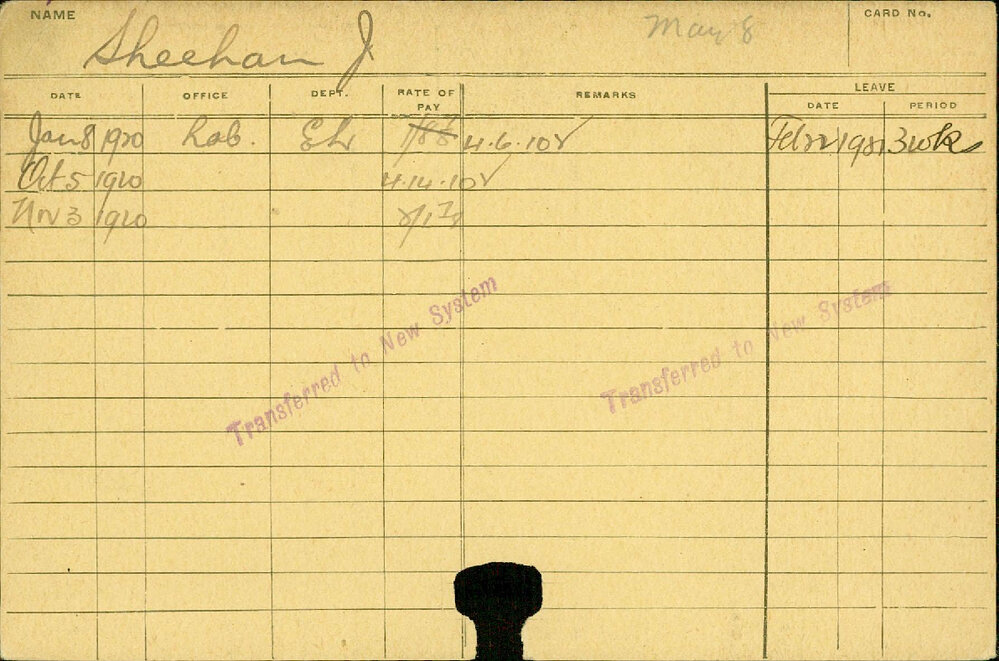 NAME
Sheehan J
May 8
CARD No.
DATE OFFICE DEPT. RATE OF PAY REMARKS LEAVE
DATE PERIOD
Jan 8 1920 Lab. 4.6.10 1921 3 wk
Oct 5 1920 4.14.10
Nov 3 1920
Transferred to New System
Transferred to New System